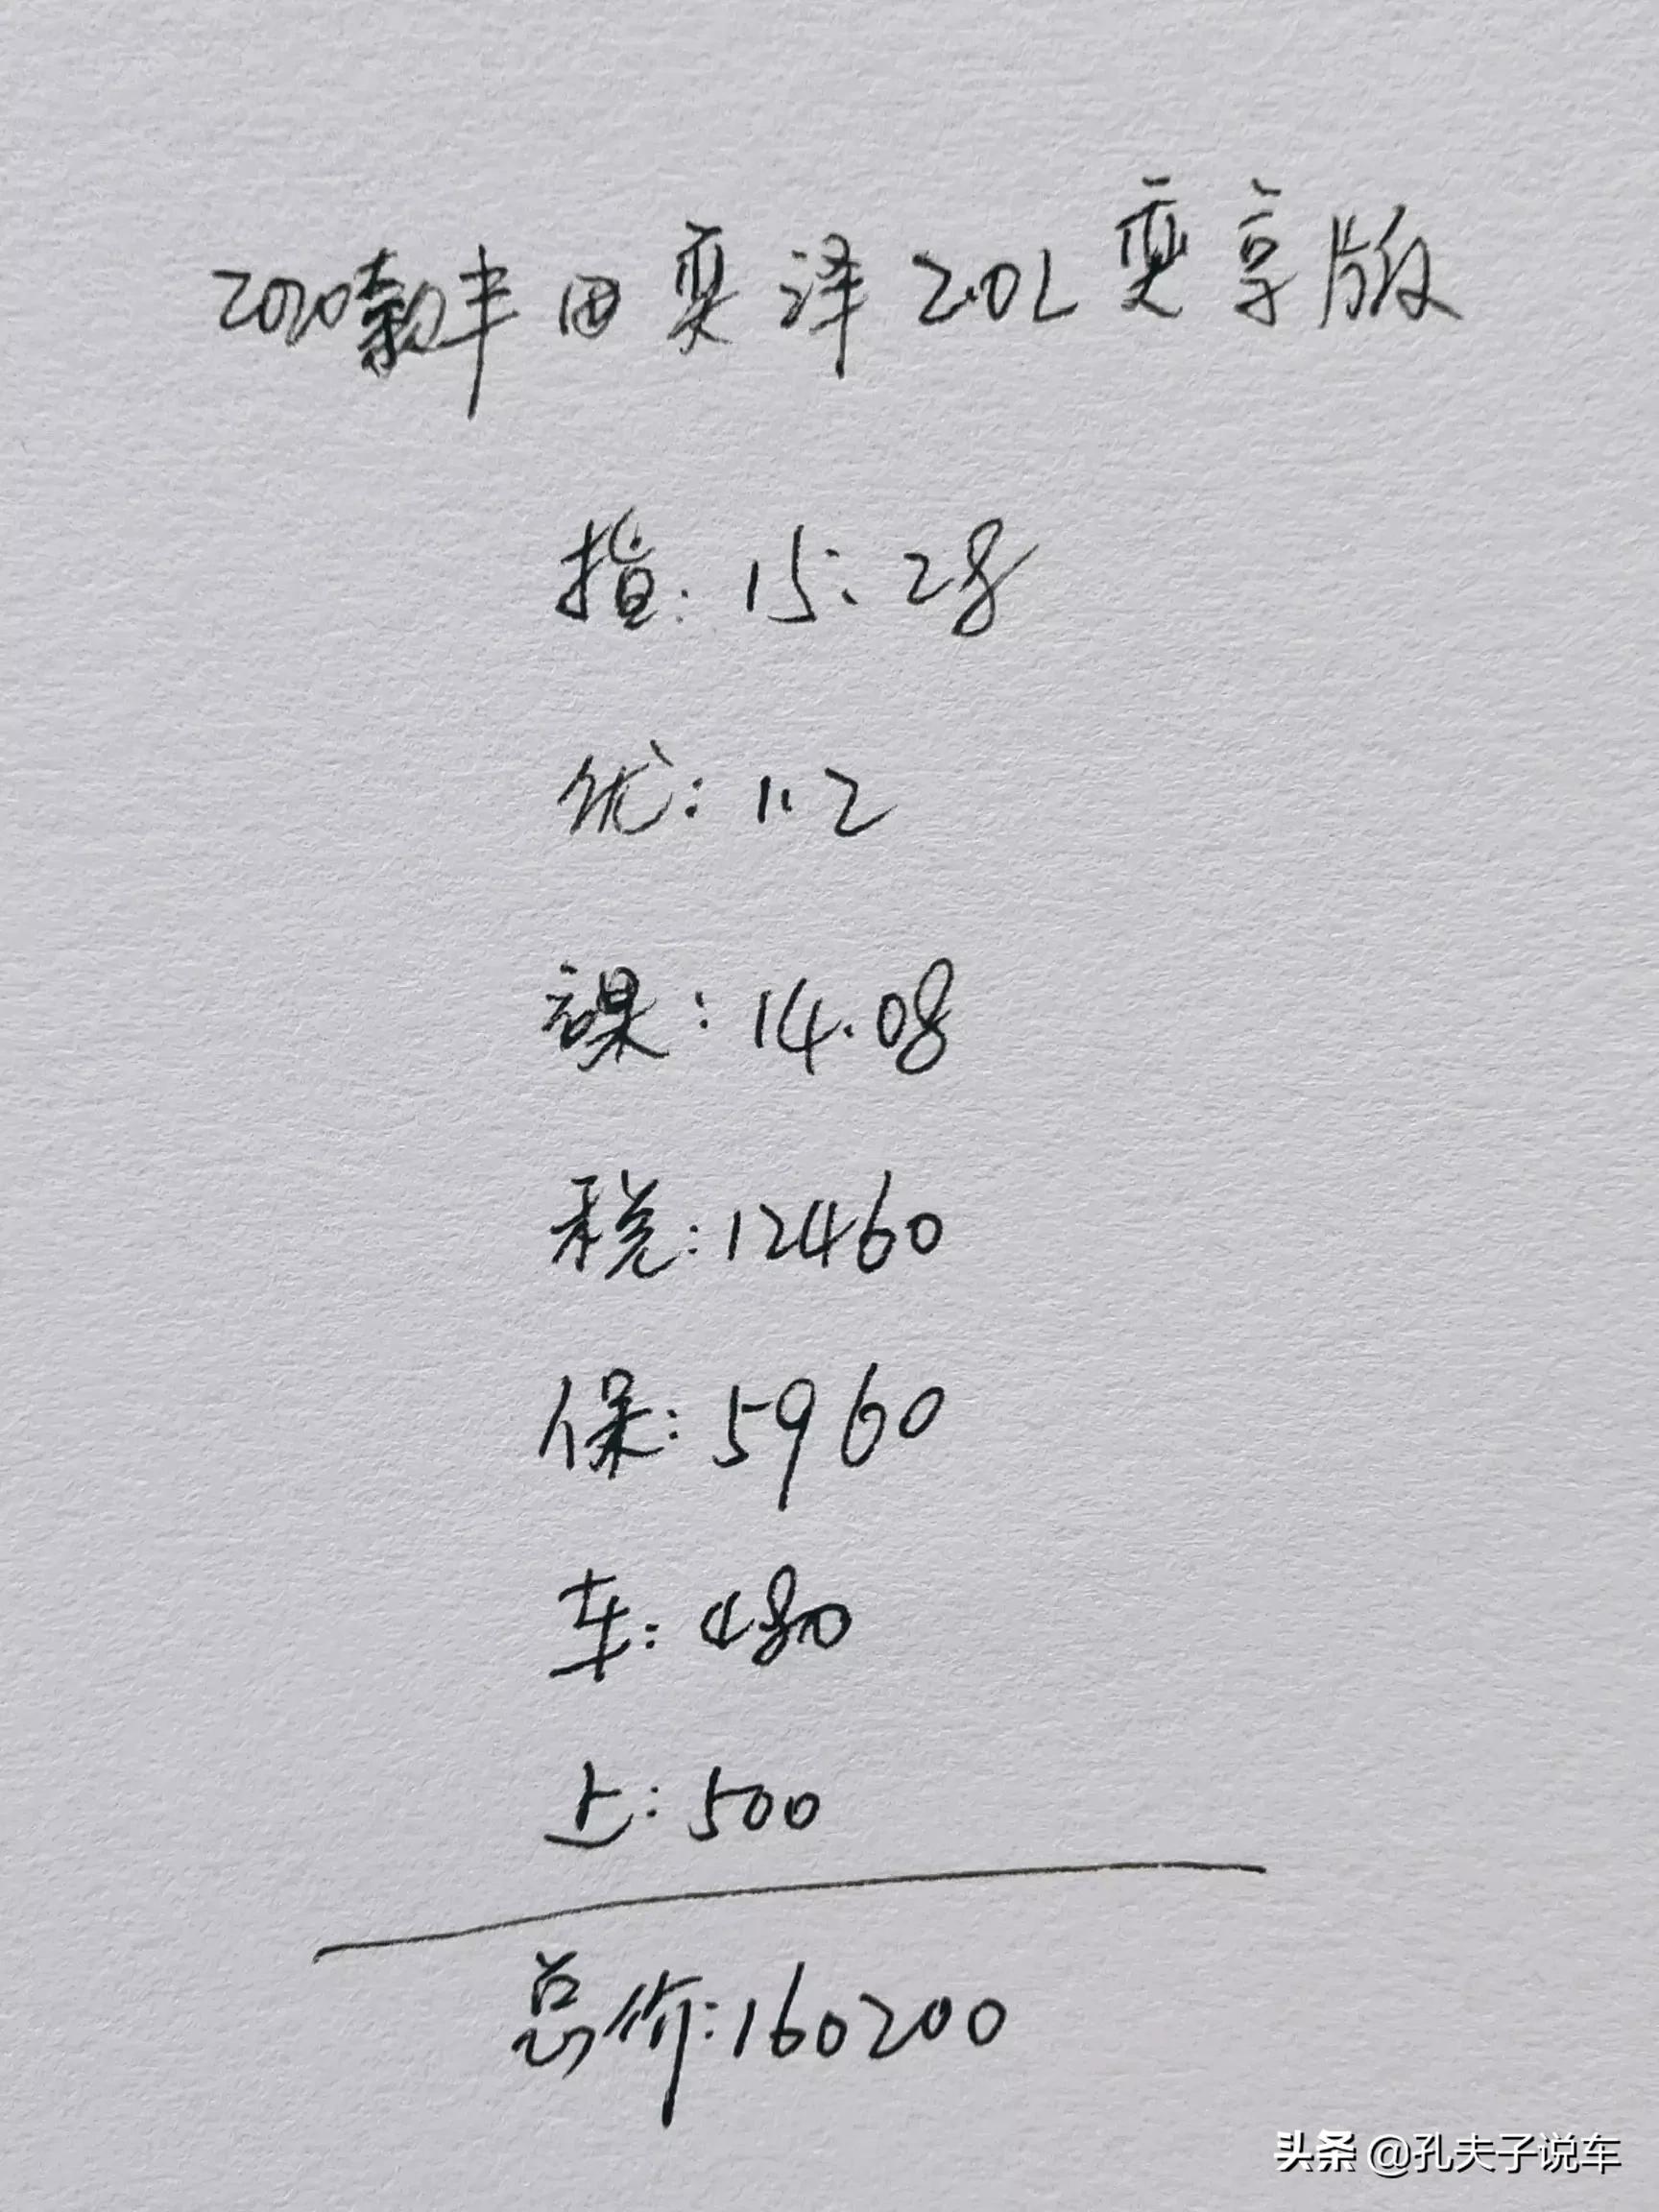 2020款丰田奕泽2.0L奕享版
指:15:28
优:1.2
裸:14.08
税:12460
保:5960
车:480
上:500
总价:160200
头条 @孔夫子说车